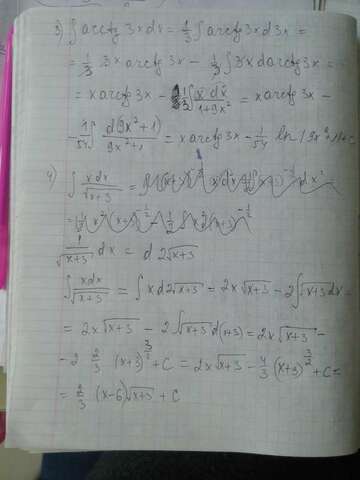 3) ∫ arctg 3x dx = 1/3 ∫ arctg 3x d3x =
= 1/3 · 3x arctg 3x - 1/3 ∫ 3x d arctg 3x =
= x arctg 3x - ∫ x dx / 1+9x² = x arctg 3x -
- ∫ d(9x²+1) / 9x²+1 = x arctg 3x - 1/54 ln |9x²+1| + C
4) ∫ x dx / √x+3 =
1/√x+3 dx = d 2√x+3
∫ x dx / √x+3 = ∫ x d 2√x+3 = 2x √x+3 - 2 ∫ √x+3 dx =
= 2x √x+3 - 2 ∫ √x+3 d(x+3) = 2x √x+3 -
- 2 · 2/3 (x+3)^3/2 + C = 2x √x+3 - 4/3 (x+3)^3/2 + C =
= 2/3 (x-6) √x+3 + C